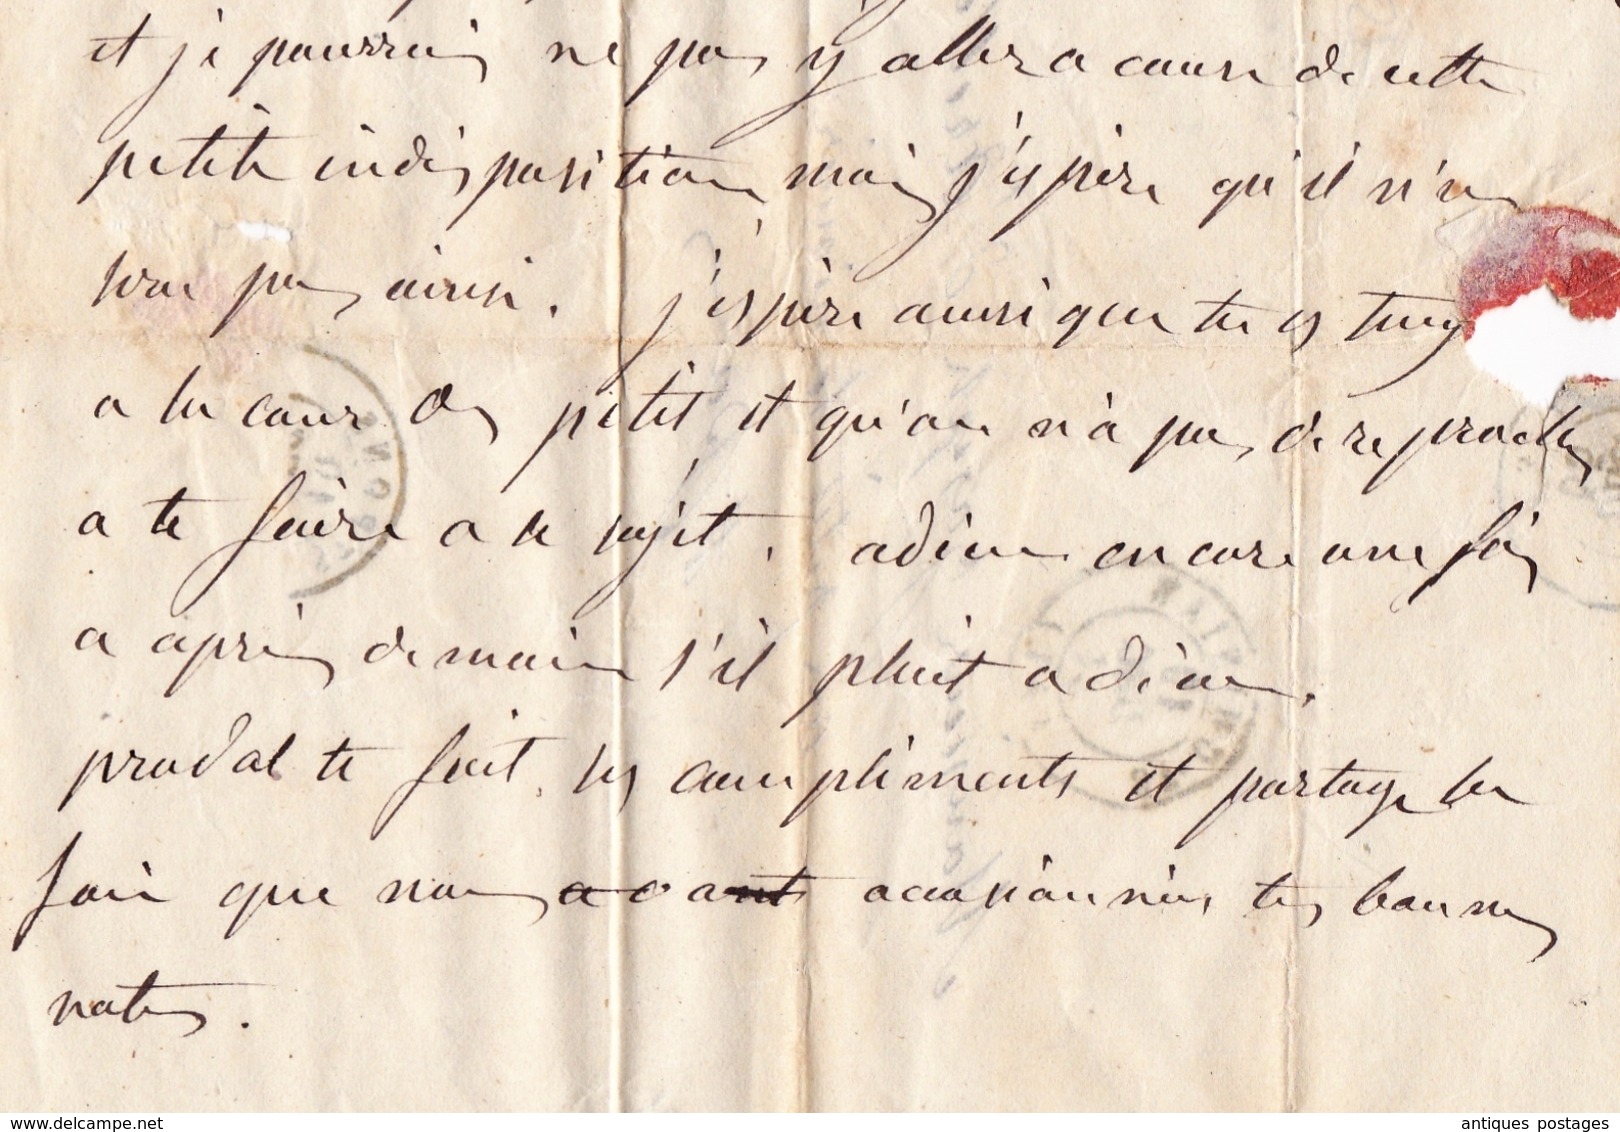 et je pourrai ne pas y aller a cause de cette
petite indisposition mais j'espère qu'il n'en
sera pas ainsi. j'espère aussi que tu es
a la cour des petit et qu'on n'a pas de reproches
a te faire a ce sujet. adieu encore une fois
a après demain s'il plait a dieu.
pradal te fait ses compliments et partage la
joie que nous ont occasionnées tes bonnes
notes.
antiques postages
www.delcampe.net